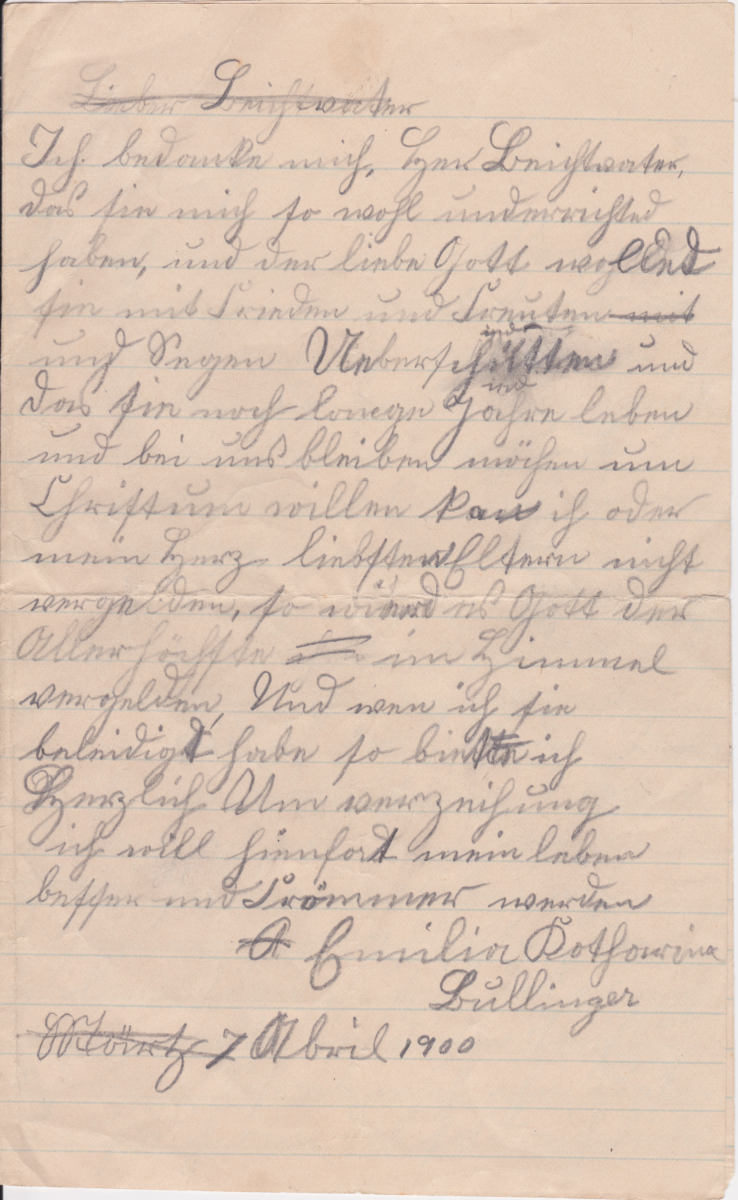 Lieber Beichtvater
Ich bedanke mich, Her Beichtvater,
das sie mich so wohl underrichted
haben, und der liebe Gott wolled
sie mit Frieden und Freuten mit
und Segen Ueberschütten und
das sie noch lange Jahre leben
und bei uns bleiben möchen um
Christum willen kan ich oder
mein Herz liebsten Eltern nicht
vergelden, so würd es Gott der
Allerhöchste im Himmel
vergelden, Und wen ich sie
beleidigt habe so bitte ich
Herzlich Um verzeihung
ich will hienfort mein leben
besser und Frömmer werden
A Emilia Katharina
Bullinger
Märtz 7 Abril 1900